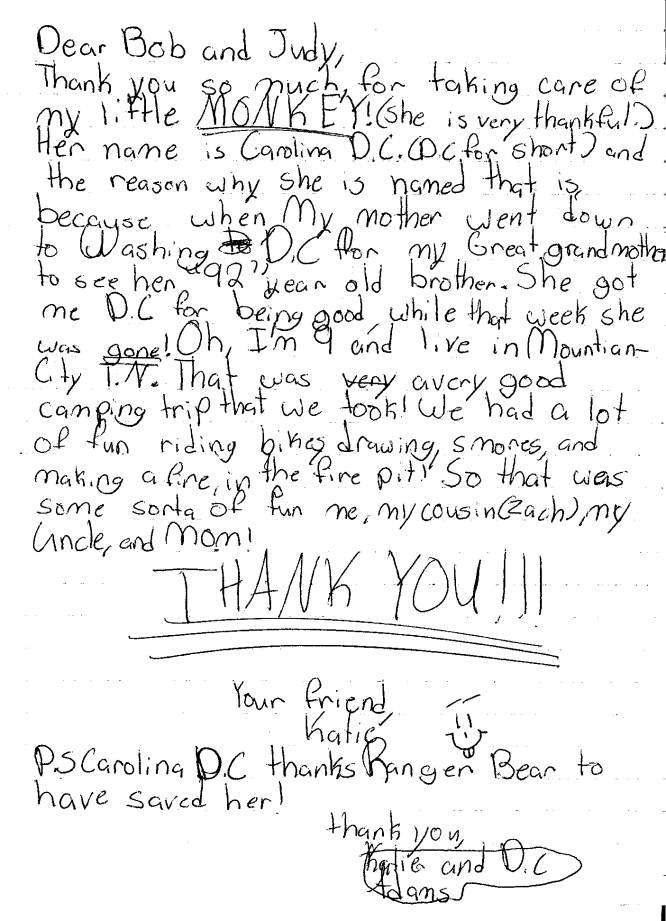 Dear Bob and Judy,
Thank you so much, for taking care of
my little MONKEY! (She is very thankful.)
Her name is Carolina D.C. (DC for short) and
the reason why she is named that is
because when My mother went down
to Washing D.C for my Great grandmother
to see her "92" year old brother. She got
me D.C for being good, while that week she
was gone! Oh, I'm 9 and live in Mountian-
City T.N. That was very avery good
camping trip that we took! We had a lot
of fun riding bikes, drawing, smores, and
making a fire, in the fire pit! So that was
some sorta of fun me, my cousin (Zach), my
Uncle, and Mom!
THANK YOU!!!
Your friend,
Katie
P.S Carolina D.C thanks Ranger Bear to
have saved her!
thank you,
Katie and D.C
Adams